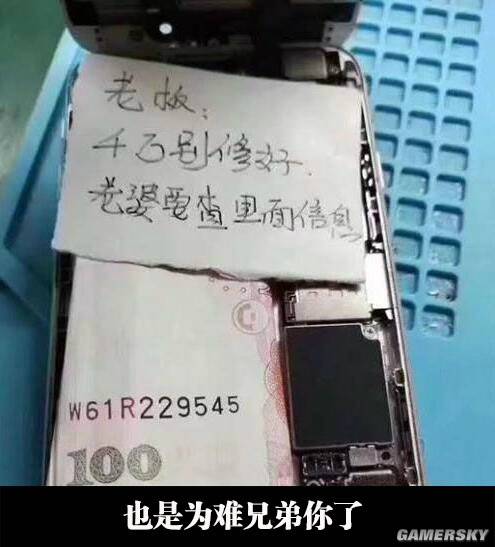 老板：
千万别修好.
老婆要查里面信息
W61R229545
100
也是为难兄弟你了
GAMERSKY